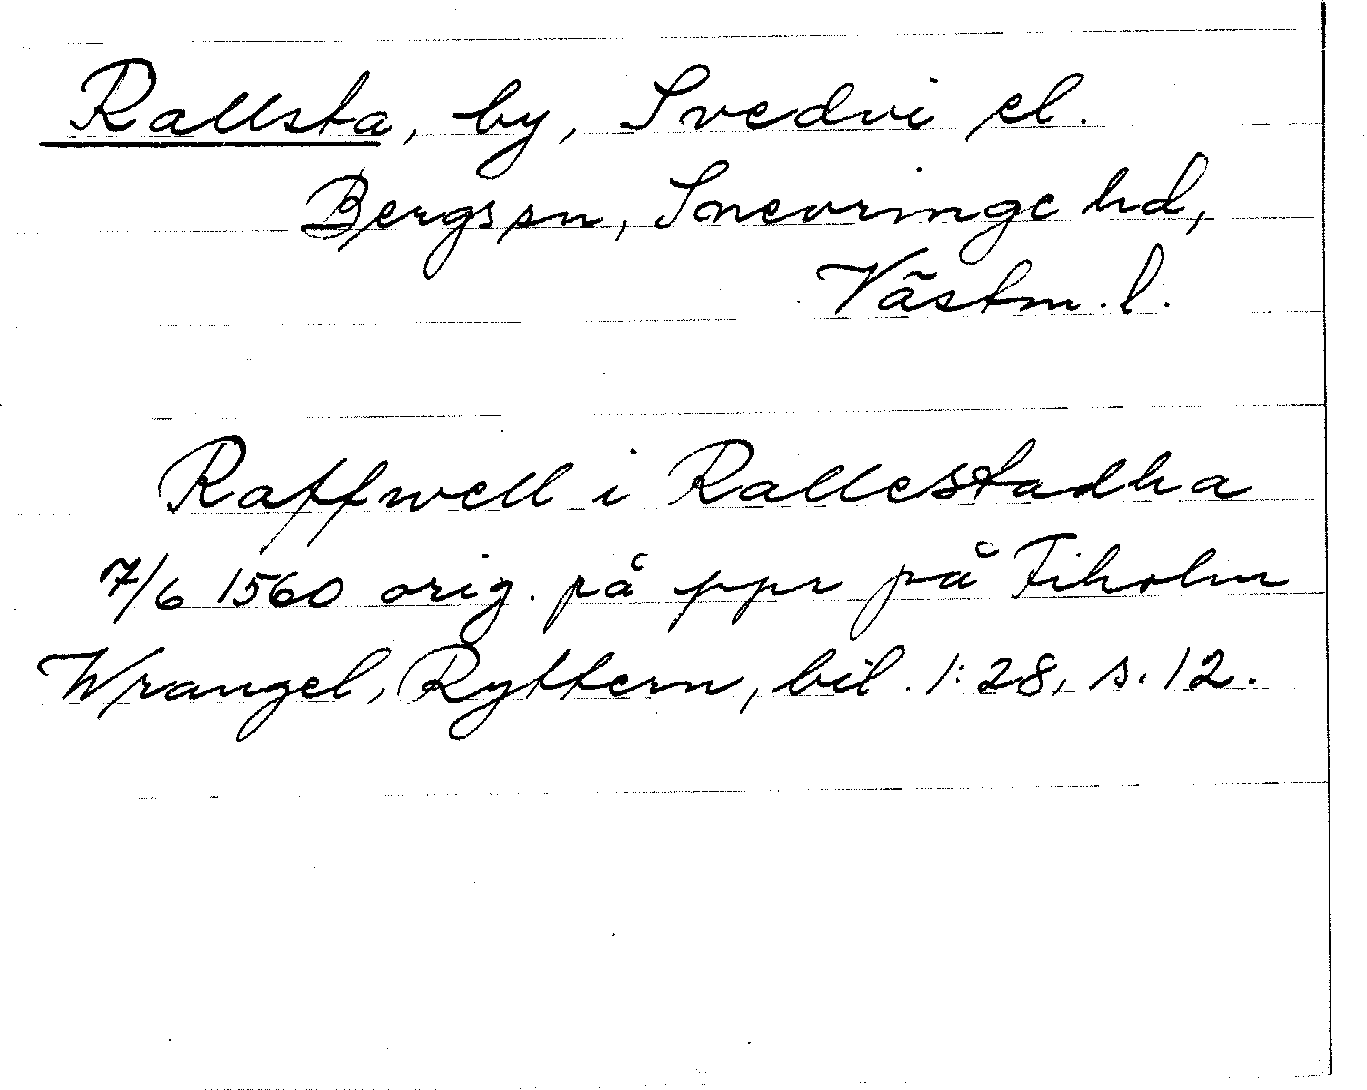 Rallsta, by, Svedvi el.
Bergs sn, Snevringe hd,
Västm. l.
Raffwell i Rallestadha
7/6 1560 orig. på ppr på Fiholm
Wrangel, Ryttern, bil. 1:28, s. 12.